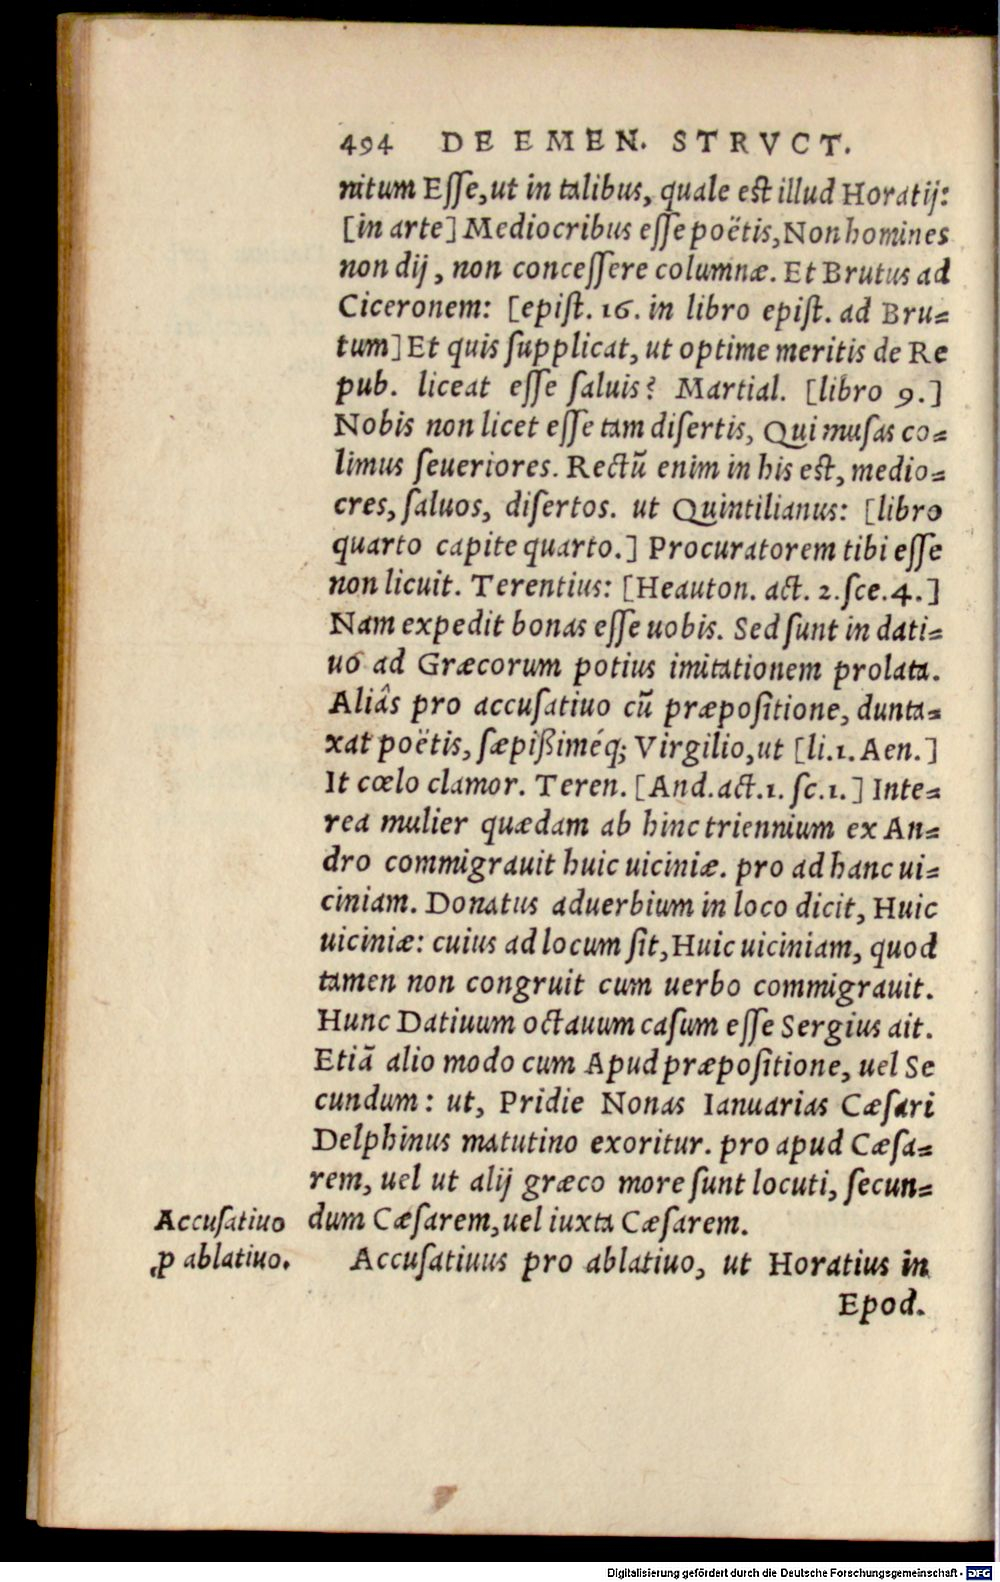 494 DE EMEN. STRVCT.
nitum Esse, ut in talibus, quale est illud Horatij:
[in arte] Mediocribus esse poëtis, Non homines
non dij, non concessere columnæ. Et Brutus ad
Ciceronem: [epist. 16. in libro epist. ad Bru=
tum] Et quis supplicat, ut optime meritis de Re
pub. liceat esse saluis? Martial. [libro 9.]
Nobis non licet esse tam disertis, Qui musas co=
limus seueriores. Rectũ enim in his est, medio=
cres, saluos, disertos. ut Quintilianus: [libro
quarto capite quarto.] Procuratorem tibi esse
non licuit. Terentius: [Heauton. act. 2. sce. 4.]
Nam expedit bonas esse uobis. Sed sunt in dati=
uo ad Græcorum potius imitationem prolata.
Aliâs pro accusatiuo cũ præpositione, dunta=
xat poëtis, sæpißiméq; Virgilio, ut [li. 1. Aen.]
It cœlo clamor. Teren. [And. act. 1. sc. 1.] Inte=
rea mulier quædam ab hinc triennium ex An=
dro commigrauit huic uiciniæ. pro ad hanc ui=
ciniam. Donatus aduerbium in loco dicit, Huic
uiciniæ: cuius ad locum sit, Huic uiciniam, quod
tamen non congruit cum uerbo commigrauit.
Hunc Datiuum octauum casum esse Sergius ait.
Etiã alio modo cum Apud præpositione, uel Se
cundum: ut, Pridie Nonas Ianuarias Cæsari
Delphinus matutino exoritur. pro apud Cæsa=
rem, uel ut alij græco more sunt locuti, secun=
dum Cæsarem, uel iuxta Cæsarem.
Accusatiuo
ꝓ ablatiuo.
Accusatiuus pro ablatiuo, ut Horatius in
Epod.
Digitalisierung gefördert durch die Deutsche Forschungsgemeinschaft - DFG